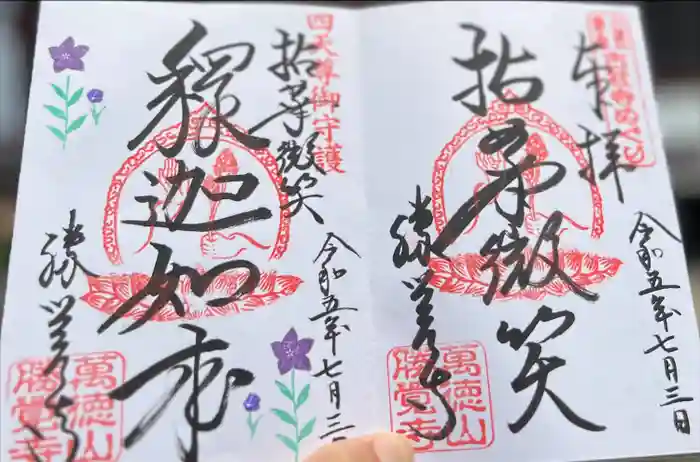 奉拝
拈華微笑
令和五年七月三日
勝覚寺
萬徳山
勝覚寺
四天尊御守護
拈華微笑
釋迦如来
令和五年七月三
勝覚寺
萬徳山
勝覚寺